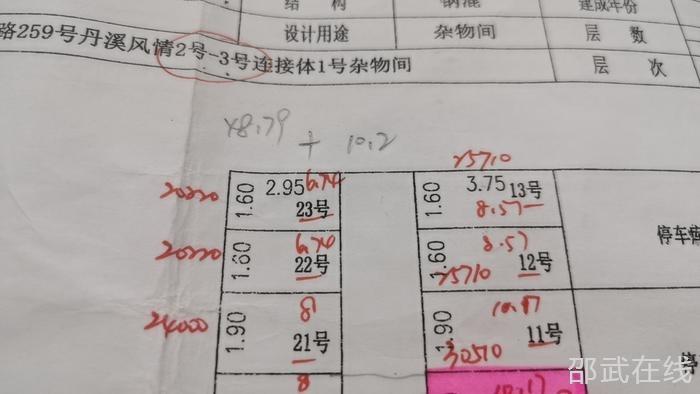 结 构 钢混 建成年份
设计用途 杂物间 层 数
路259号丹溪风情2号-3号连接体1号杂物间 层 次
48.79 + 10.2
25710
20220 1.60 2.95 6.74 23号
1.60 3.75 13号 8.57
20220 1.60 6.74 22号
1.60 8.57 25710 12号
停车
24000 1.90 8 21号
1.90 10.17 30510 11号
停
8
10.17
邵武在线